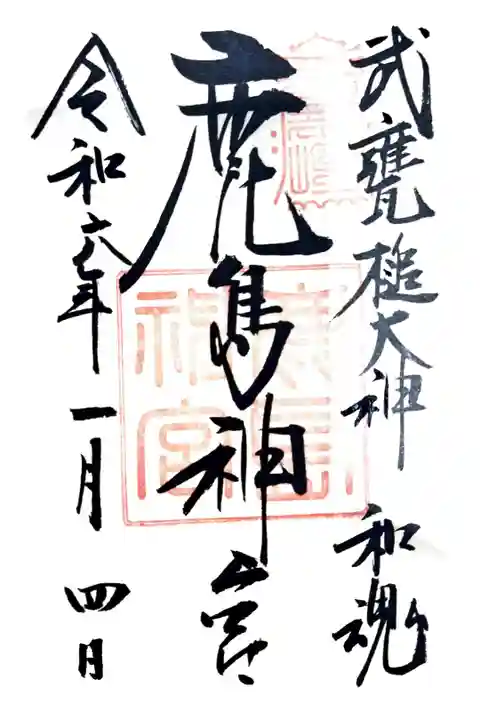 武甕槌大神 和魂
鹿島神宮
令和六年一月四日
鹿島
神宮